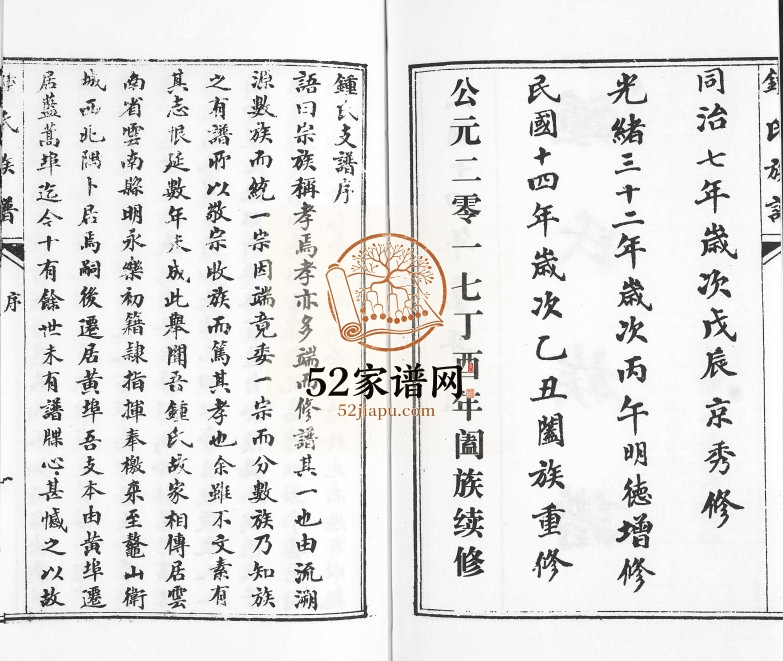 鍾氏族譜
同治七年歲次戊辰京秀修
光緒三十二年歲次丙午明德增修
民國十四年歲次乙丑闔族重修
公元二零一七丁酉年阖族续修
鍾氏支譜序
語曰宗族稱孝焉孝亦多端而修譜其一也由流溯
源數族而統一宗因端竟委一宗而分數族乃知族
之有譜所以敬宗收族而篤其孝也余雖不文素有
其志恨延數年未成此舉聞吾鍾氏故家相傳居雲
南省雲南縣明永樂初籍隸指揮奉檄來至鼇山衛
城西北隅卜居焉嗣後遷居黄埠吾支本由黄埠遷
居藍蒿埠迄今十有餘世未有譜牒心甚慽之以故
鍾氏族譜
序
52家谱网
52jiapu.com